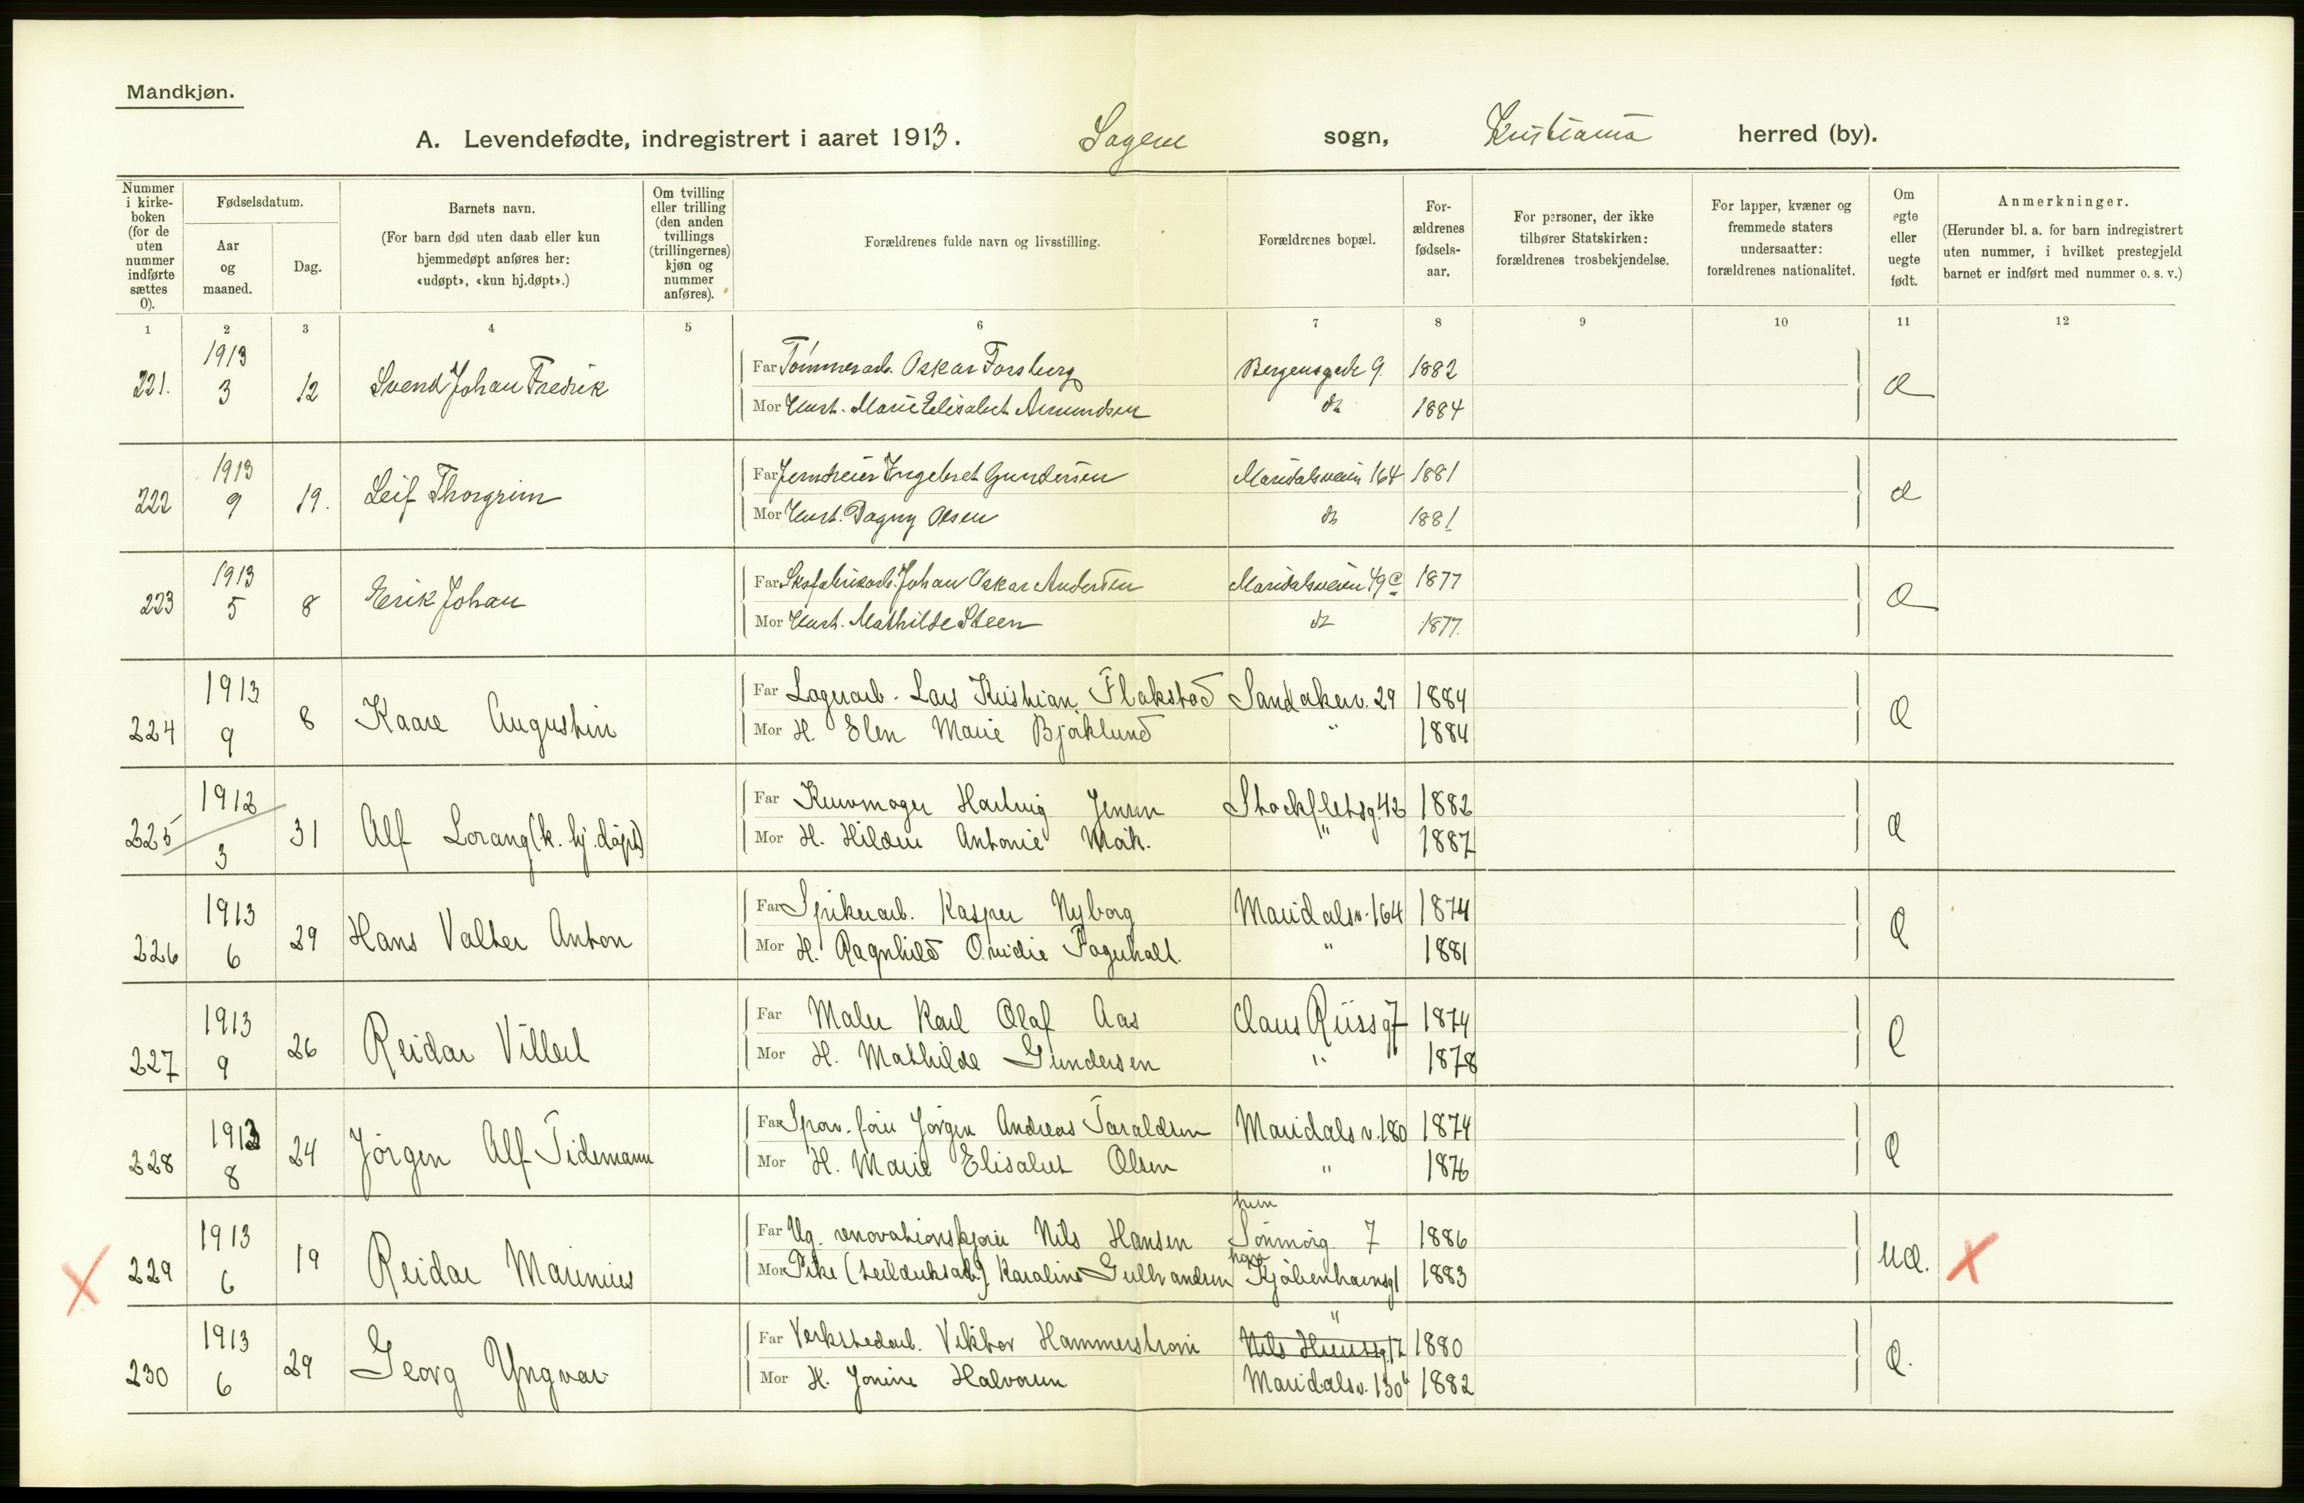 Mandkjøn.
A. Levendefødte, indregistrert i aaret 1913. Sagene sogn, Kristiania herred (by).
Nummer i kirke-boken (for de uten nummer indførte sættes 0).
Fødselsdatum.
Aar og maaned.
Dag.
Barnets navn.
(For barn død uten daab eller kun hjemmedøpt anføres her: «udøpt», «kun hj.døpt».)
Om tvilling eller trilling (den anden tvillings (trillingernes) kjøn og nummer anføres).
Forældrenes fulde navn og livsstilling.
Forældrenes bopæl.
For-ældrenes fødsels-aar.
For personer, der ikke tilhører Statskirken: forældrenes trosbekjendelse.
For lapper, kvæner og fremmede staters undersaatter: forældrenes nationalitet.
Om egte eller uegte født.
Anmerkninger.
(Herunder bl. a. for barn indregistrert uten nummer, i hvilket prestegjeld barnet er indført med nummer o. s. v.)
1 2 3 4 5 6 7 8 9 10 11 12
221. 1913 3 12 Svend Johan Fredrik
Far Tømmerarb. Oskar Forsberg Bergensgade 9. 1882
Mor Hust. Marie Elisabet Amundsen do 1884
Æ
222 1913 9 19. Leif Thorgrim
Far Jerndreier Ingebret Gundersen Maridalsveien 164 1881
Mor Hust. Dagny Olsen do 1881
æ
223 1913 5 8 Erik Johan
Far Skofabrikarb. Johan Oskar Andersen Maridalsveien 49 c 1877
Mor Hust. Mathilde Steen do 1877.
Æ
224 1913 9 8 Kaare Augustin
Far Lagerarb. Lars Kristian Flakstad Sandakerv. 29 1884
Mor H. Elen Marie Bjørklund " 1884
Æ
225 1912 3 31 Alf Lorang (k. hj. døpt)
Far Kurvmager Hartvig Jensen Stockfletsg. 42 1882
Mor H. Hildur Antonie Moik. " 1887
Æ
226 1913 6 29 Hans Valter Anton
Far Spikerarb. Kasper Nyborg Maridalsv. 164 1874
Mor H. Ragnhild Ovidie Fagerholt. " 1881
Æ
227 1913 9 26 Reidar Villed
Far Maler Karl Olaf Aas Claus Riissg 7 1874
Mor H. Mathilde Gundersen " 1878
Æ
228 1913 8 24 Jørgen Alf Tidemann
Far Sporv. fører Jørgen Andreas Taraldsen Maridalsv. 180 1874
Mor H. Marie Elisabet Olsen " 1876
Æ
229 1913 6 19 Reidar Marinius
Far Ug. renovationskjører Nils Hansen Sønmørg. 7 1886
Mor Pike (seilduksarb.) Karoline Gulbrandsen Kjøbenhavnsg 1883
UÆ.
230 1913 6 29 Georg Yngvar
Far Verkstedarb. Viktor Hammerstrøm Nils Huusg 12 1880
Mor H. Jonine Halvorsen Maridalsv. 130 1882
Æ.